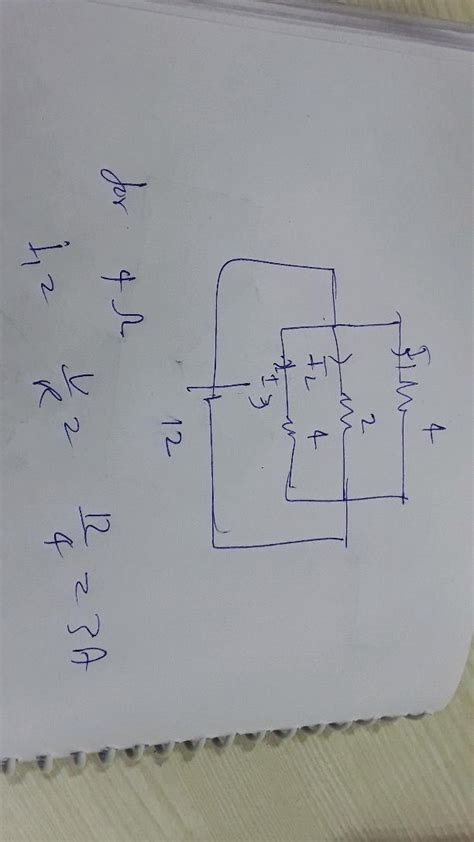 4
I1
2
I2
4
I3
12
for 4 Ω
i1 = V/R = 12/4 = 3A